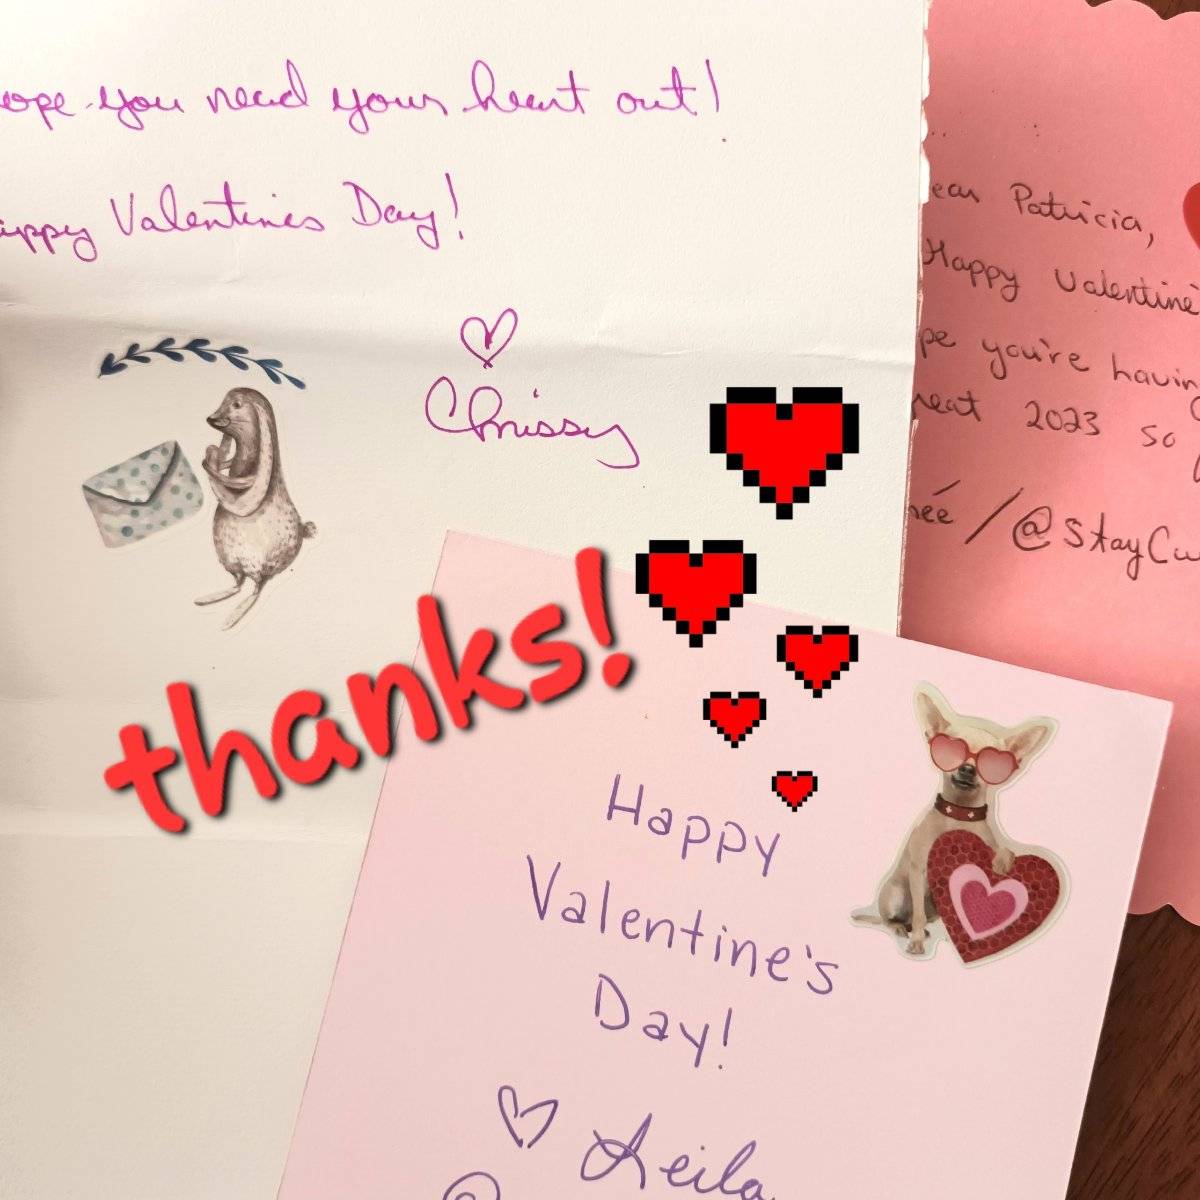 ope you read your heart out!
appy Valentines Day!
Chrissy
ear Patricia,
Happy Valentine's
pe you're having
reat 2023 so
ée / @stayCu
thanks!
Happy
Valentine's
Day!
Leila
@